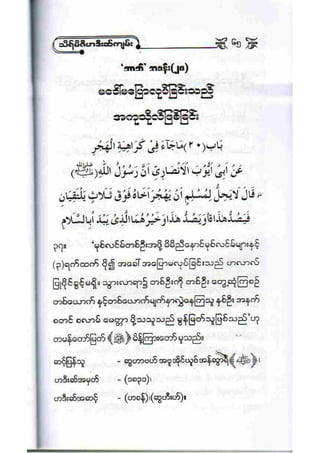 သိရ်မိဇီဟဒီးဆ်ကျမ်း ၆၅
'ဘာဘ်' အခန်း(၂၀)
မခေါ်မပြောလုပ်ခြင်းသည်
အကုသိုလ်ဖြစ်ခြင်း
بَاب(٢٠)مَاجَآءَ فِي كَرَاهِيَةِ الْهَجْرِ
عَنْ أَبِي أَيُّوبَ الْأَنْصَارِي أَنَّ رَسُوْلُ اللهِ(ﷺ)
قَالَ لَايَحِلُّ لِمُسْلِمٍ أَنْ يَهْجُرَأَخَاهُ فَوْقَ ثَلَاثٍ يَلْتَقِيَانِ
فَيَصُدُّهٰذَاوَيَصُدُّ هٰذَاوَخَيْرُهُمَاالَّذِى يَبْدَأُبِالسَّلَامِ
၃၇။ 'မွစ်လင်မ်တစ်ဦးအဖို့ မိမိညီနောင်မုစ်လင်မ်များနှင့်
(၃)ရက်ထက် ပို၍ အခေါ် အပြောမလုပ်ခြင်းသည် ဟလာလ်
ဖြစ်ပိုင်ခွင့်မရှိ။ သွားလာရာ၌ တစ်ဦးကို တစ်ဦး တွေ့ဆုံကြစဉ်
တစ်ယောက် နှင့်တစ်ယောက်မျက်နှာလွှဲနေကြသူ နှစ်ဦး အနက်
စတင် စလာမ် မေတ္တာ ပို့သသူသည် မွန်မြတ်သူဖြစ်သည်'ဟု
တမန်တော်မြတ်(ﷺ)မိန့်ကြားတော်မူသည်။
ဆင့်ပြန်သူ - ဆွဟာဗဟ် အဗူအိုင်ယူဗ်အန်ဆွာရီ
ဟဒီးဆ်အမှတ် - (၁၈၃၁)၊
ဟဒီးဆ်အဆင့် - (ဟစန်)(ဆွဟီးဟ်)။